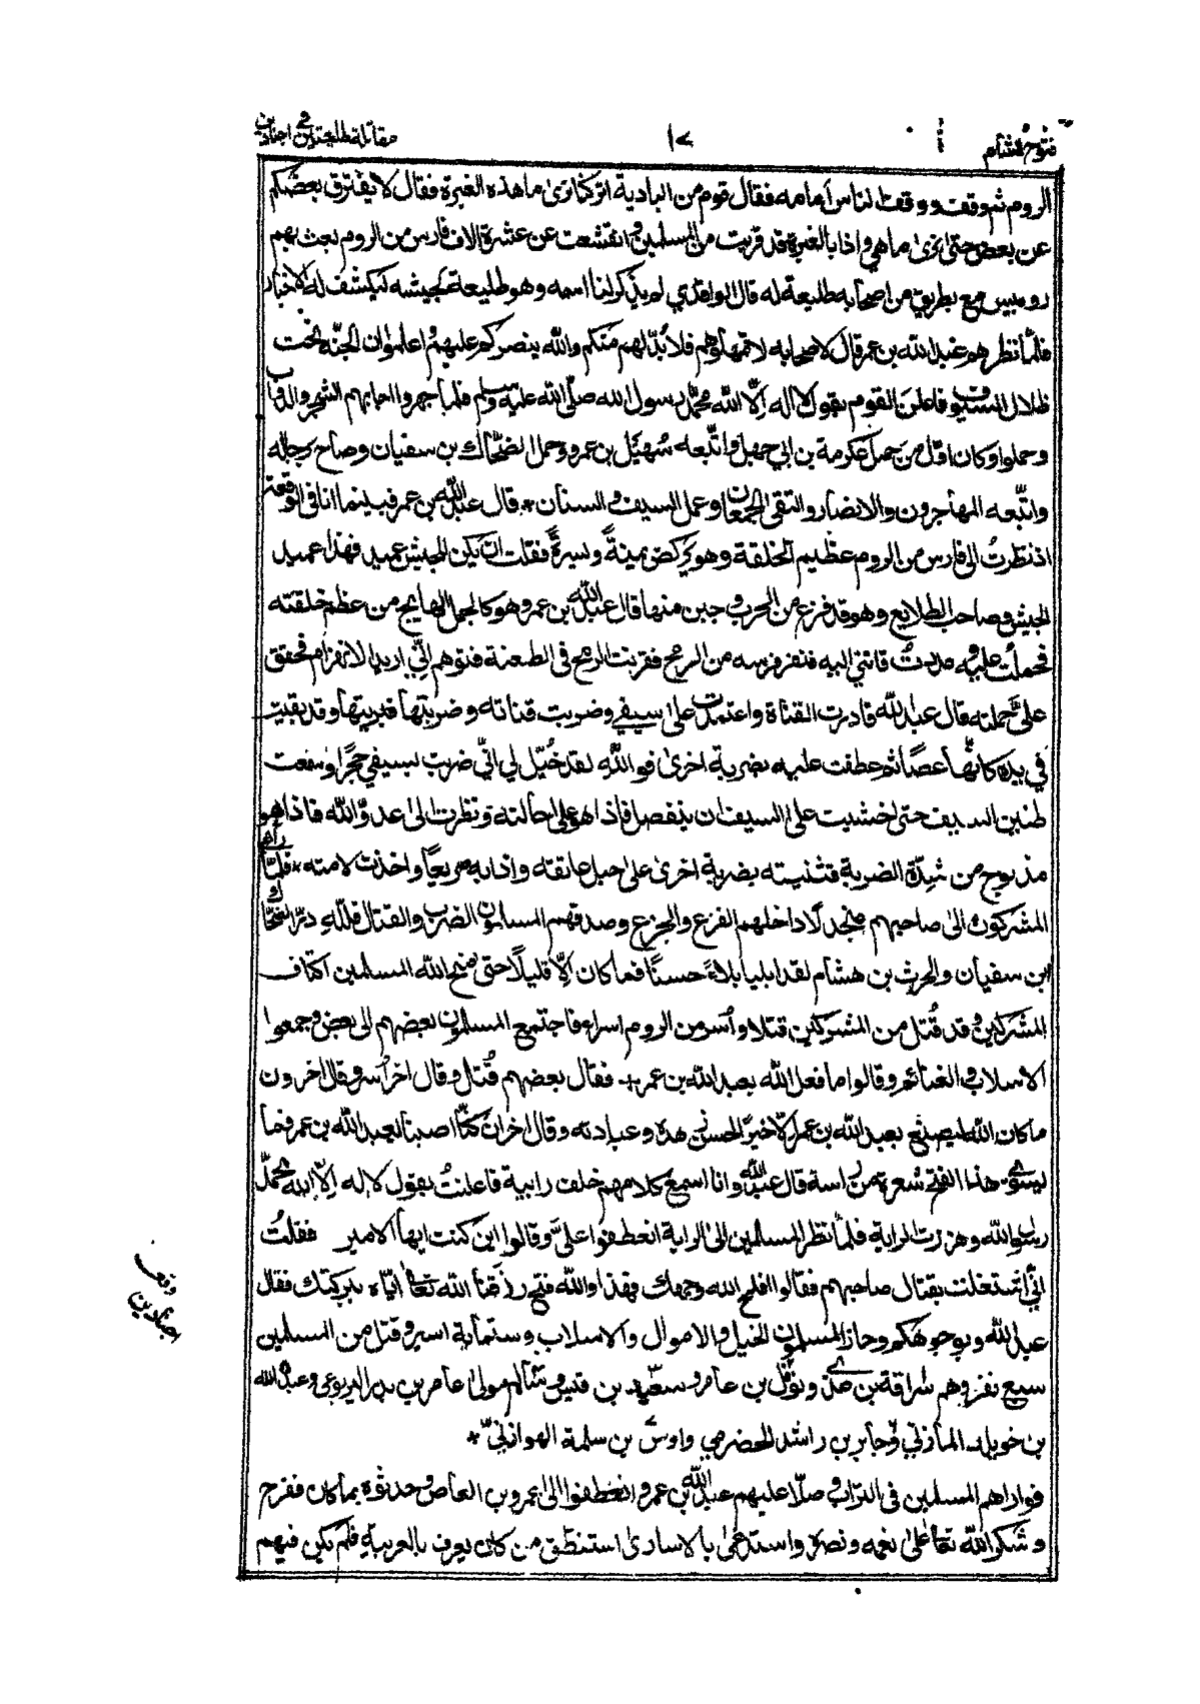 فتوح الشام
١٧
مقاتلة طليعتين في اجنادين
الروم ثم وقف ووقف الناس أمامه فقال قوم من البادية اتركنا نرى ما هذه الغبرة فقال لا يفترق بعضكم
عن بعض حتى نرى ما هي واذا بالغبرة قد قربت من المسلمين وانقشعت عن عشرة الاف فارس من الروم بعث بهم
روبيس مع بطريق من اصحابه طليعة له قال الواقدي لم يذكر لنا اسمه وهو طليعة لجيشه ليكشف له الاخبار
فلمّا نظرهم عبد الله بن عمر قال لاصحابه لا تمهلوهم فلا بدّ لهم منكم والله ينصركم عليهم واعلموا ان الجنّة تحت
ظلال السيوف فاعلن القوم بقول لا اله إلّا الله محمّد رسول الله صلّى الله عليه وسلم فلما جهروا بها اجابهم الشجر والدواب
وحملوا وكان اوّل من حمل عكرمة بن ابي جهل واتّبعه سُهَيْل بن عمرو وحمل الضحّاك بن سفيان وصاح برجاله
واتّبعه المهاجرون والانصار والتقى الجمعان وعمل السيف والسنان * قال عبد الله بن عمر فبينما انا في الوقعة
اذ نظرتُ الى فارس من الروم عظيم الخلقة وهو يركض يمينةً ويسرةً فقلت ان يكن للجيش عميد فهذا عميد
الجيش وصاحب الطلايع وهو قد فزع من الحرب وجبن منها قال عبد الله بن عمر وهو كالجمل الهايج من عظم خلقته
فحملتُ عليه ومددتُ قناتي اليه فنفر فرسه من الرمح فقربت الرمح في الطعنة فتوهم انّي اريد الانهزام فحقق
عليّ حملته قال عبد الله فادرت القناة واعتمدت على سيفي وضربت قناته وضربتها فبريتها وقد بقيت
في يده كانّها عصًا ثم عطفت عليه بضربة اخرى فو اللهِ لقد خُيّل لي انّي ضربت بسيفي حجرًا وسمعت
طنين السيف حتى خشيت على السيف ان ينفصل فاذا هو على حالته ونظرت الى عدوّ الله فاذا هو
مذبوح من شدّة الضربة فتثنيته بضربة اخرى على حبل عاتقه واذا به صريعًا واخذت لامته * فلمّا راى
المشركون الى صاحبهم منجدلًا داخلهم الفزع والجزع وصدقهم المسلمون الضرب والقتال فللّه درّ الضحّاك
ابن سفيان والحرث بن هشام لقد ابليا بلاءً حسنًا فما كان إلّا قليلًا حتى منح الله المسلمين اكتاف
المشركين وقد قُتل من المشركين قتلا وأُسر من الروم اسراء فاجتمع المسلمون بعضهم الى بعض وجمعوا
الاسلاب والغنائم وقالوا ما فعل الله بعبد الله بن عمر + فقال بعضهم قُتل وقال اخر أُسر وقال اخرون
ما كان الله ليصنع بعبد الله بن عمر إلّا خيرًا لحسن زهده وعبادته وقال اخر ان كنّا اصبنا بعبد الله بن عمر فما
يسوي هذا الفتح شعرة من راسه قال عبد الله وانا اسمع كلامهم خلف رابية فاعلنتُ بقول لا اله إلّا الله محمّد
رسول الله وهززت الراية فلمّا نظر المسلمين الى الراية انعطفوا عليَّ وقالوا اين كنت ايها الامير فقلتُ
انّي اشتغلت بقتال صاحبهم فقالوا افلح الله وجهك فهذا والله فتح رزقنا الله تعالى ايّاه ببركتك فقال
عبد الله وبوجوهكم وحاز المسلمون الخيل والاموال والاسلاب وستماية اسير وقتل من المسلمين
سبع نفر وهم سراقة بن عدي ونوفل بن عامر وسعيد بن قيس وسالم مولى عامر بن بدر اليربوعي وعبد الله
بن خويلد المازني وجابر بن راشد الحضرمي واوس بن سلمة الهوازنيّ *
فواراهم المسلمين في التراب وصلّا عليهم عبد الله بن عمر وانعطفوا الى عمرو بن العاص وحدثوه بما كان ففرح
وشكر الله تعالى على نعمه ونصره واستدعى بالاسارى استنطق من كان يعرف بالعربية فلم يكن فيهم
وقعة
اجنادين